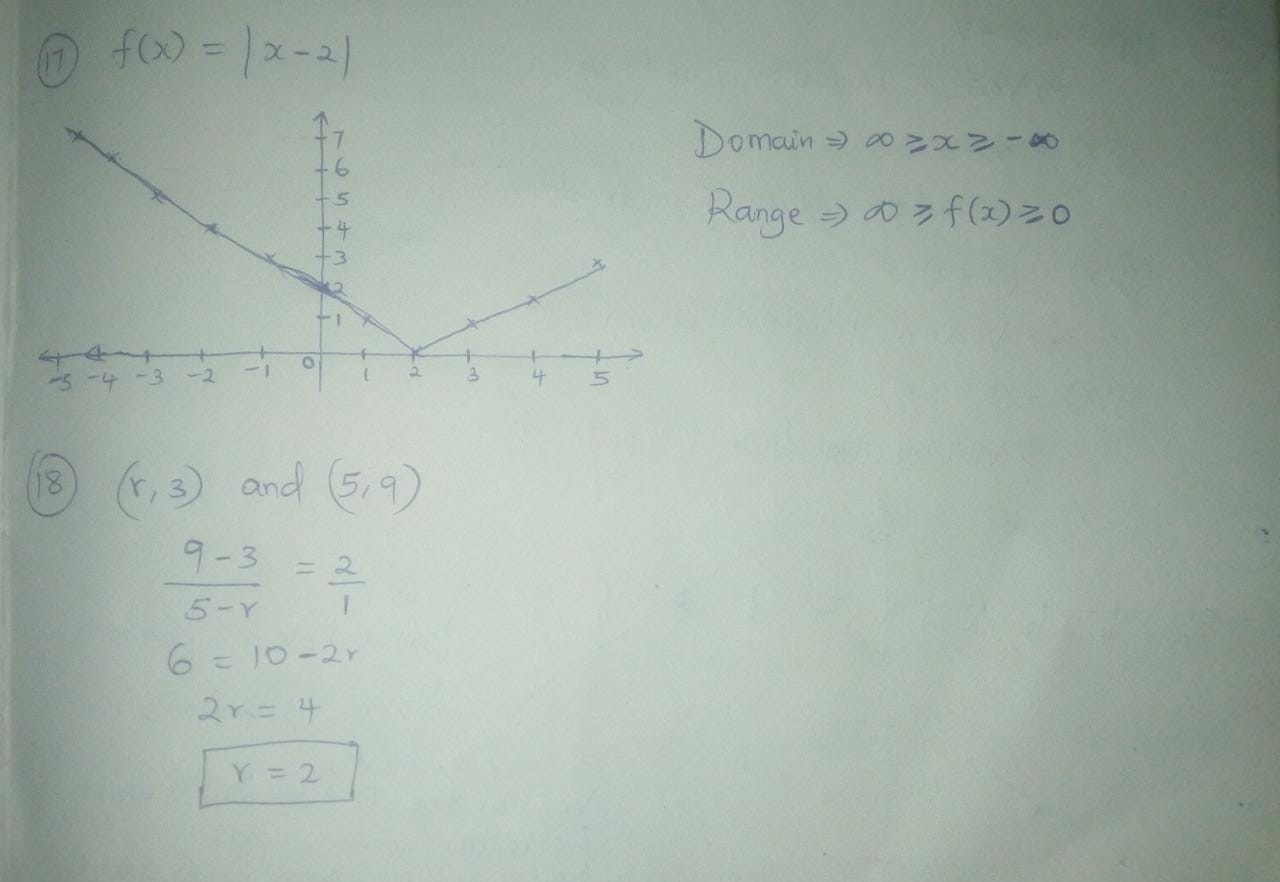 17 f(x) = |x-2|
7
6
5
4
3
2
1
0
-5 -4 -3 -2 -1 1 2 3 4 5
Domain ⇒ ∞ ≥ x ≥ -∞
Range ⇒ ∞ ≥ f(x) ≥ 0
18 (r, 3) and (5, 9)
9-3
5-r
= 2
1
6 = 10-2r
2r = 4
r = 2